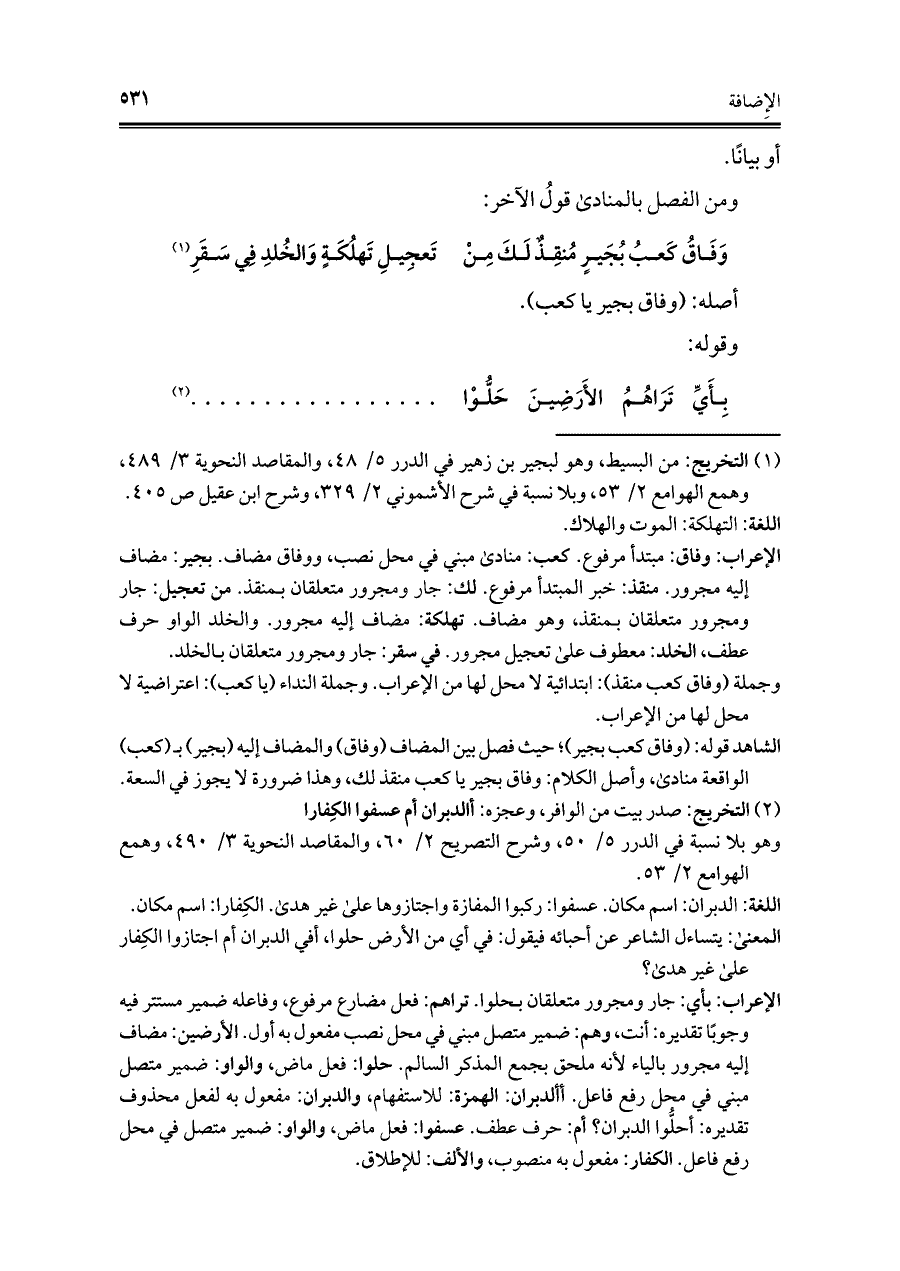 الإِضافة ٥٣١
أو بيانًا.
ومن الفصل بالمنادىٰ قولُ الآخر:
وَفَـاقُ كَعـبُ بُجَيـرٍ مُنقِـذٌ لَـكَ مِـنْ تَعجِيـلِ تَهلُكَـةٍ وَالخُلدِ فِي سَـقَرِ(١)
أصله: (وفاق بجير يا كعب).
وقوله:
بِـأَيِّ تَرَاهُـمُ الأَرَضِيـنَ حَلُّـوْا . . . . . . . . . . . . . . . . .(٢)
(١) التخريج: من البسيط، وهو لبجير بن زهير في الدرر ٥/ ٤٨، والمقاصد النحوية ٣/ ٤٨٩،
وهمع الهوامع ٢/ ٥٣، وبلا نسبة في شرح الأشموني ٢/ ٣٢٩، وشرح ابن عقيل ص ٤٠٥.
اللغة: التهلكة: الموت والهلاك.
الإعراب: وفاق: مبتدأ مرفوع. كعب: منادىٰ مبني في محل نصب، ووفاق مضاف. بجير: مضاف
إليه مجرور. منقذ: خبر المبتدأ مرفوع. لك: جار ومجرور متعلقان بـمنقذ. من تعجيل: جار
ومجرور متعلقان بـمنقذ، وهو مضاف. تهلكة: مضاف إليه مجرور. والخلد الواو حرف
عطف، الخلد: معطوف علىٰ تعجيل مجرور. في سقر: جار ومجرور متعلقان بـالخلد.
وجملة (وفاق كعب منقذ): ابتدائية لا محل لها من الإعراب. وجملة النداء (يا كعب): اعتراضية لا
محل لها من الإعراب.
الشاهد قوله: (وفاق كعب بجير)؛ حيث فصل بين المضاف (وفاق) والمضاف إليه (بجير) بـ (كعب)
الواقعة منادىٰ، وأصل الكلام: وفاق بجير يا كعب منقذ لك، وهذا ضرورة لا يجوز في السعة.
(٢) التخريج: صدر بيت من الوافر، وعجزه: أالدبران أم عسفوا الكِفارا
وهو بلا نسبة في الدرر ٥/ ٥٠، وشرح التصريح ٢/ ٦٠، والمقاصد النحوية ٣/ ٤٩٠، وهمع
الهوامع ٢/ ٥٣.
اللغة: الدبران: اسم مكان. عسفوا: ركبوا المفازة واجتازوها علىٰ غير هدىٰ. الكِفارا: اسم مكان.
المعنىٰ: يتساءل الشاعر عن أحبائه فيقول: في أي من الأرض حلوا، أفي الدبران أم اجتازوا الكِفار
علىٰ غير هدىٰ؟
الإعراب: بأي: جار ومجرور متعلقان بـحلوا. تراهم: فعل مضارع مرفوع، وفاعله ضمير مستتر فيه
وجوبًا تقديره: أنت، وهم: ضمير متصل مبني في محل نصب مفعول به أول. الأرضين: مضاف
إليه مجرور بالياء لأنه ملحق بجمع المذكر السالم. حلوا: فعل ماض، والواو: ضمير متصل
مبني في محل رفع فاعل. أألدبران: الهمزة: للاستفهام، والدبران: مفعول به لفعل محذوف
تقديره: أحلُّوا الدبران؟ أم: حرف عطف. عسفوا: فعل ماض، والواو: ضمير متصل في محل
رفع فاعل. الكفار: مفعول به منصوب، والألف: للإطلاق.